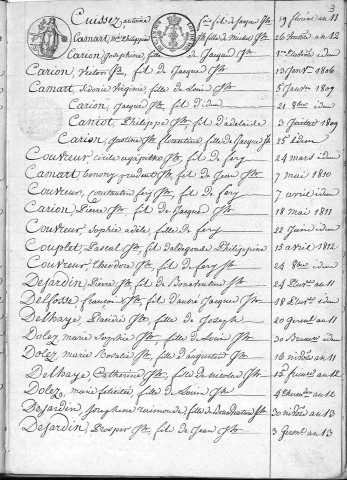 3
Cuissez, antoine fils de Jacque Jh 19 floréal an 11
Camart, Philippine Jh fille de michel Jh 26 an 12
Carion, Josephine, fille de Jacque Jh
Carion, Victor Jh, fil de Jacque Jh 13 Janvr 1806
Camart, Sidonie Virginie, fille de Louis Jh 5 Janvr 1809
Carion, Jacque Jh, fil d'idem 21 8bre idem
Caniot, Philippe Jh, fil d'adelaïde 3 Juillet 1809
Carion, Justine Jh florentine, fille de Jacque Jh 25 idem
Couvreur, agapithe Jh, fil de fery 24 mars idem
Camart, prudent Jh, fil de Jean Jh 7 mai 1810
Couvreur, constantin fery Jh, fil de fery 7 avril idem
Carion, Pierre Jh, fil de Jacque Jh 18 mai 1811
Couvreur, Sophie adèle, fille de fery 22 Juin idem
Couplet, Pascal Jh, fil d'aldegonde Philippine 15 avril 1812
Couvreur, théodore Jh, fil de fery Jh 24 8bre idem
Dejardin, Pierre Jh, fil de Bonaventure Jh 24 an 11
Delfosse, françois Jh, fil d'andré Jacque Jh 18 idem
Delhaye, Placidie Jh, fille de Joseph 20 Germinal an 11
Dolez, marie Sophie Jh, fille de Louis Jh 30 Brumre idem
Dolez, marie Rosalie Jh, fille d'augustin Jh 16 nivôse an 11
Delhaye Catherine Jh, fille de nicolas Jh 15 an 12
Dolez, marie félicité, fille de Louis Jh 4 an 12
Dejardin, Josephine raimonde, fille de Bonaventure Jh 30 nivôse an 13
Dejardin, Prosper Jh, fil de Jean Jh 3 Germl an 13